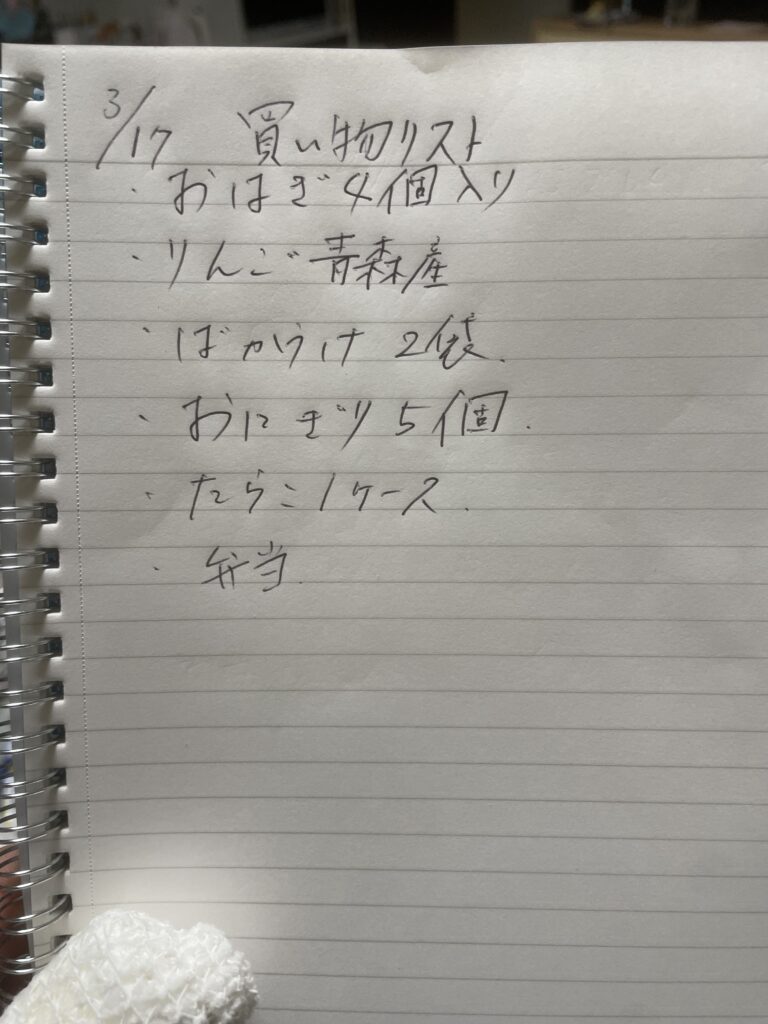 3/17 買い物リスト
・おはぎ4個入り
・りんご青森産
・ばかうけ 2袋.
・おにぎり5個.
・たらこ1ケース.
・弁当.